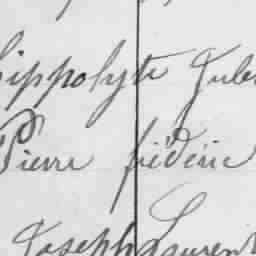 hippolyte Jules
Pierre frédéric
Joseph Laurent